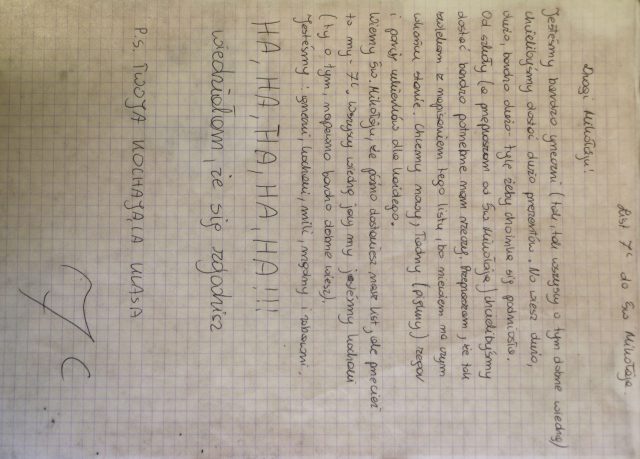 List 7c do Św Mikołaja.
Drogi Mikołaju!
Jesteśmy bardzo grzeczni (tak, tak wszyscy o tym dobrze wiedzą)
chcielibyśmy dostać dużo prezentów. No wiesz dużo,
dużo, bardzo dużo - tyle żeby choinka się podniosła.
Od szkoły (a przepraszam od Św Mikołaja) chcielibyśmy
dostać bardzo potrzebne nam rzeczy. Przepraszam, że tak
zwlekam z napisaniem tego listu, bo niewiem na czym
stanie. Chcemy nowy, ładny (piękny) zegar
i ponić cukierków dla każdego.
Wiemy Św. Mikołaju, że późno dostaniesz nasz list, ale przecież
to my - 7c. Wszyscy wiedzą jacy my jesteśmy kochani
(ty o tym, napewno bardzo dobrze wiesz).
Jesteśmy: grzeczni, kochani, mili, mądrzy i zabawni.
HA, HA, HA, HA, HA!!!!
wiedziałam, że się zgodzisz
P.S. TWOJA KOCHAJĄCA KLASA
7c